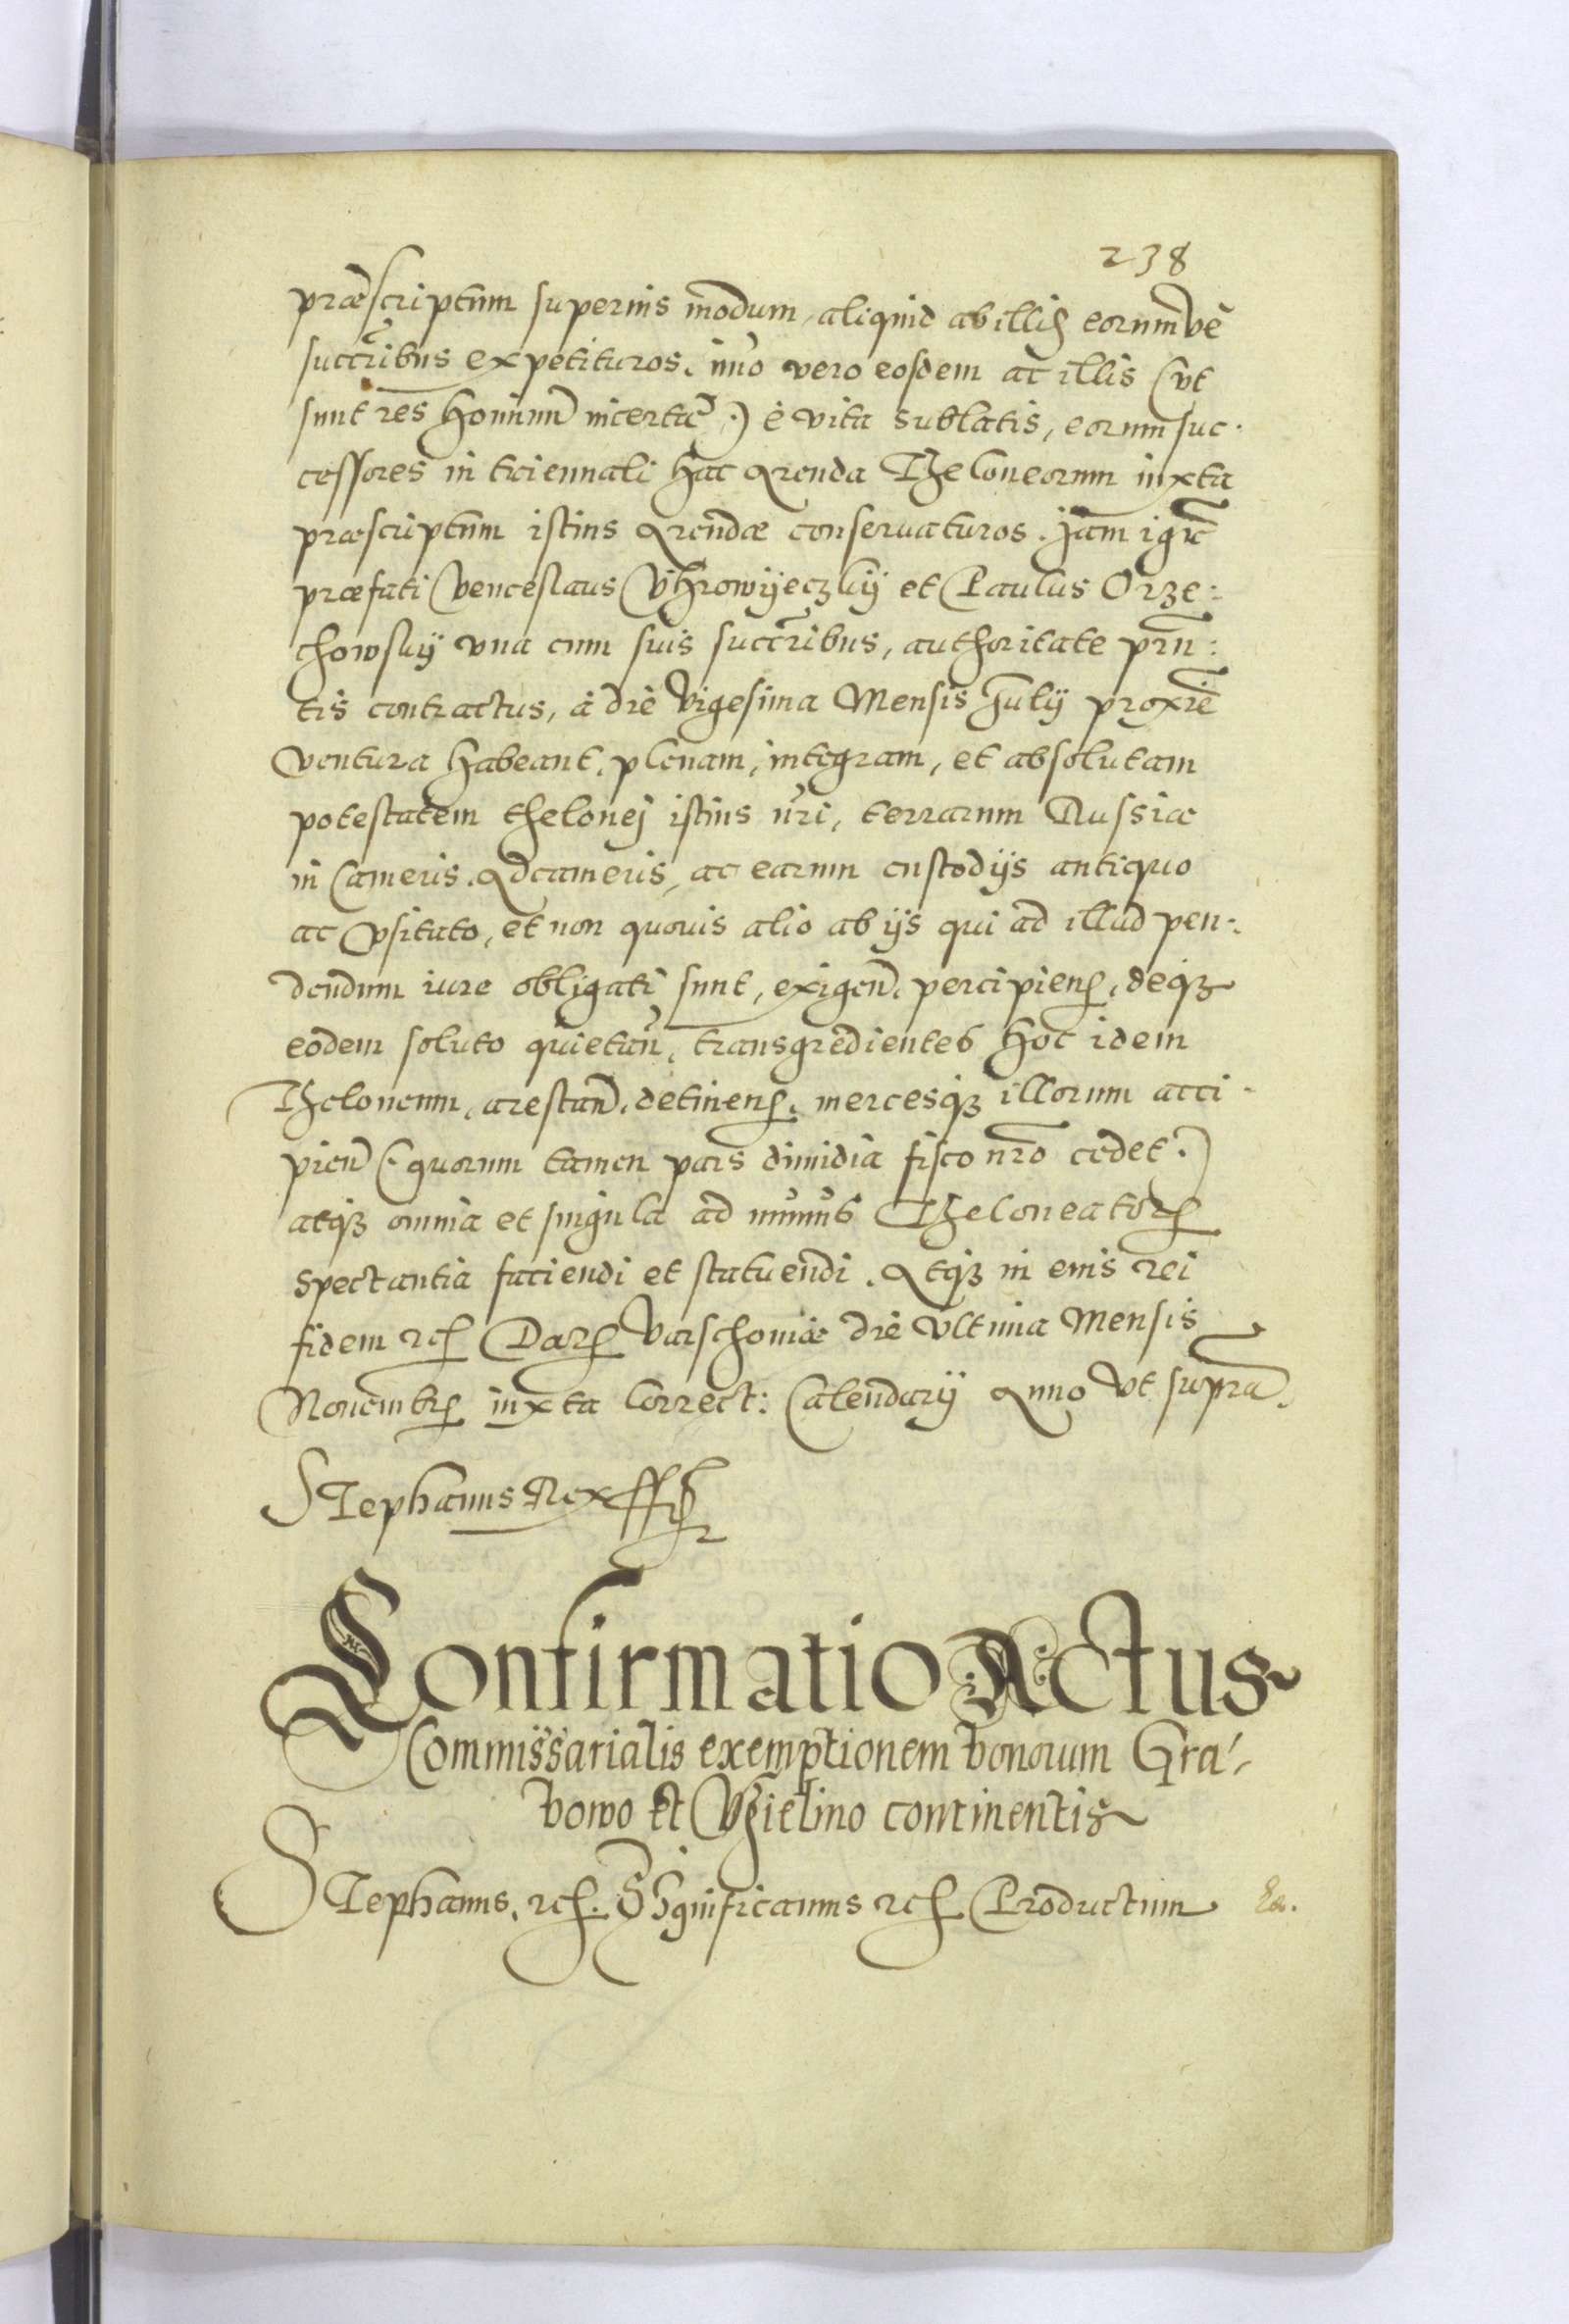 238
præscriptum superius modum, aliquid ab illis eorumvè
succribus expetituros. imo vero eosdem ac illis (vt
sunt res hominũ incertæ.) è vita sublatis, eorum suc.
cessores in triennali hac Arenda Theloneorum iuxta
præscriptum istius Arendæ conseruaturos. Jam igr̃
præfati Venceslaus Vhrowÿeczkÿ et Paulus Orze:
chowskÿ vna cum suis succribus, authoritate prñ:
tis contractus, à die Vigesima Mensis Julij proximè
ventura habeant, plenam, integram, et absolutam
potestatem thelonej istius nr̃i, terrarum Russiæ
in Cameris. Adcameris, ac earum custodijs antiquo
ac vsitato, et non quouis alio ab ijs qui ad illud pen:
dendum iure obligati sunt, exigen̄. percipien̄. deqȝ
eodem soluto quietan̄. transgredientes hoc idem
Theloneum, arestan̄. detinen̄. mercesqȝ illorum acci-
pien̄ (. quorum tamen pars dimidia fisco nr̃o cedet.)
atqȝ omnia et singula ad munus Theloneator̃
spectantia faciendi et statuendi. Atqȝ in eius rei
fidem etc̃ Dat̃ Varschouiæ die vltima Mensis
Nouembr̃ iuxta Correct: Calendarij Anno vt supra.
Stephanus Rex ss̃
Confirmatio Actus
Commissarialis exemptionem bonorum Gra-
bowo et Vgielino continentis
Stephanus, etc̃. Significamus etc̃ Productum